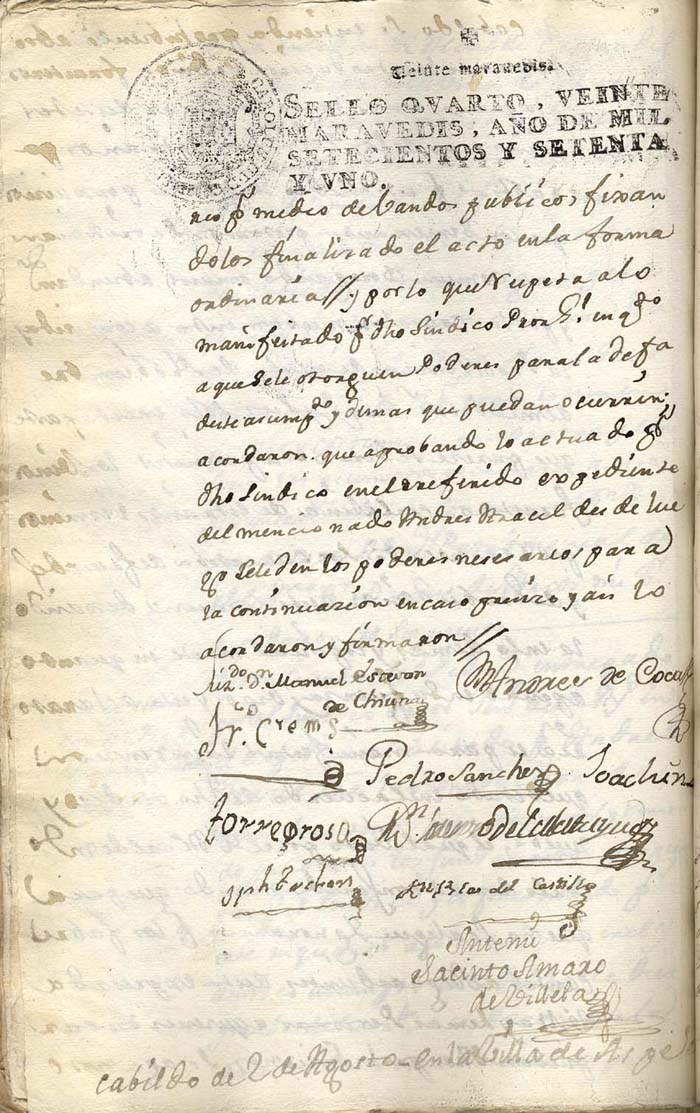 Veinte maravedis.
SELLO QVARTO, VEINTE
MARAVEDIS, AÑO DE MIL
SETECIENTOS Y SETENTA
Y VNO.
rio pr. medio de Vandos publicos fixan
dolos finalizado el acto en la forma
ordinaria // y por lo que Respeta a lo
manifestado pr. dho Sindico Pror. Gl. en
a que sele otorguen Poderes para la defa
de este asumpto y demas que puedan ocurrir:
acordaron que aprobando lo actuado pr.
dho Sindico en el referido expediente
del mencionado Andres desde lue
go sele den los poderes nesesarios para
la continuazion en caso prezizo y asi lo
acordaron y firmaron //
Liz.do Dn. Manuel Estevan
de Chiuna
Dn. Andres de Coca
Fr.co
Pedro Sanchez Joachin
torregrosa Dn.
del Castillo
Antemi
Jacinto Amaro
de Villela
Cabildo de 2 de Agosto en la Villa de Aspe